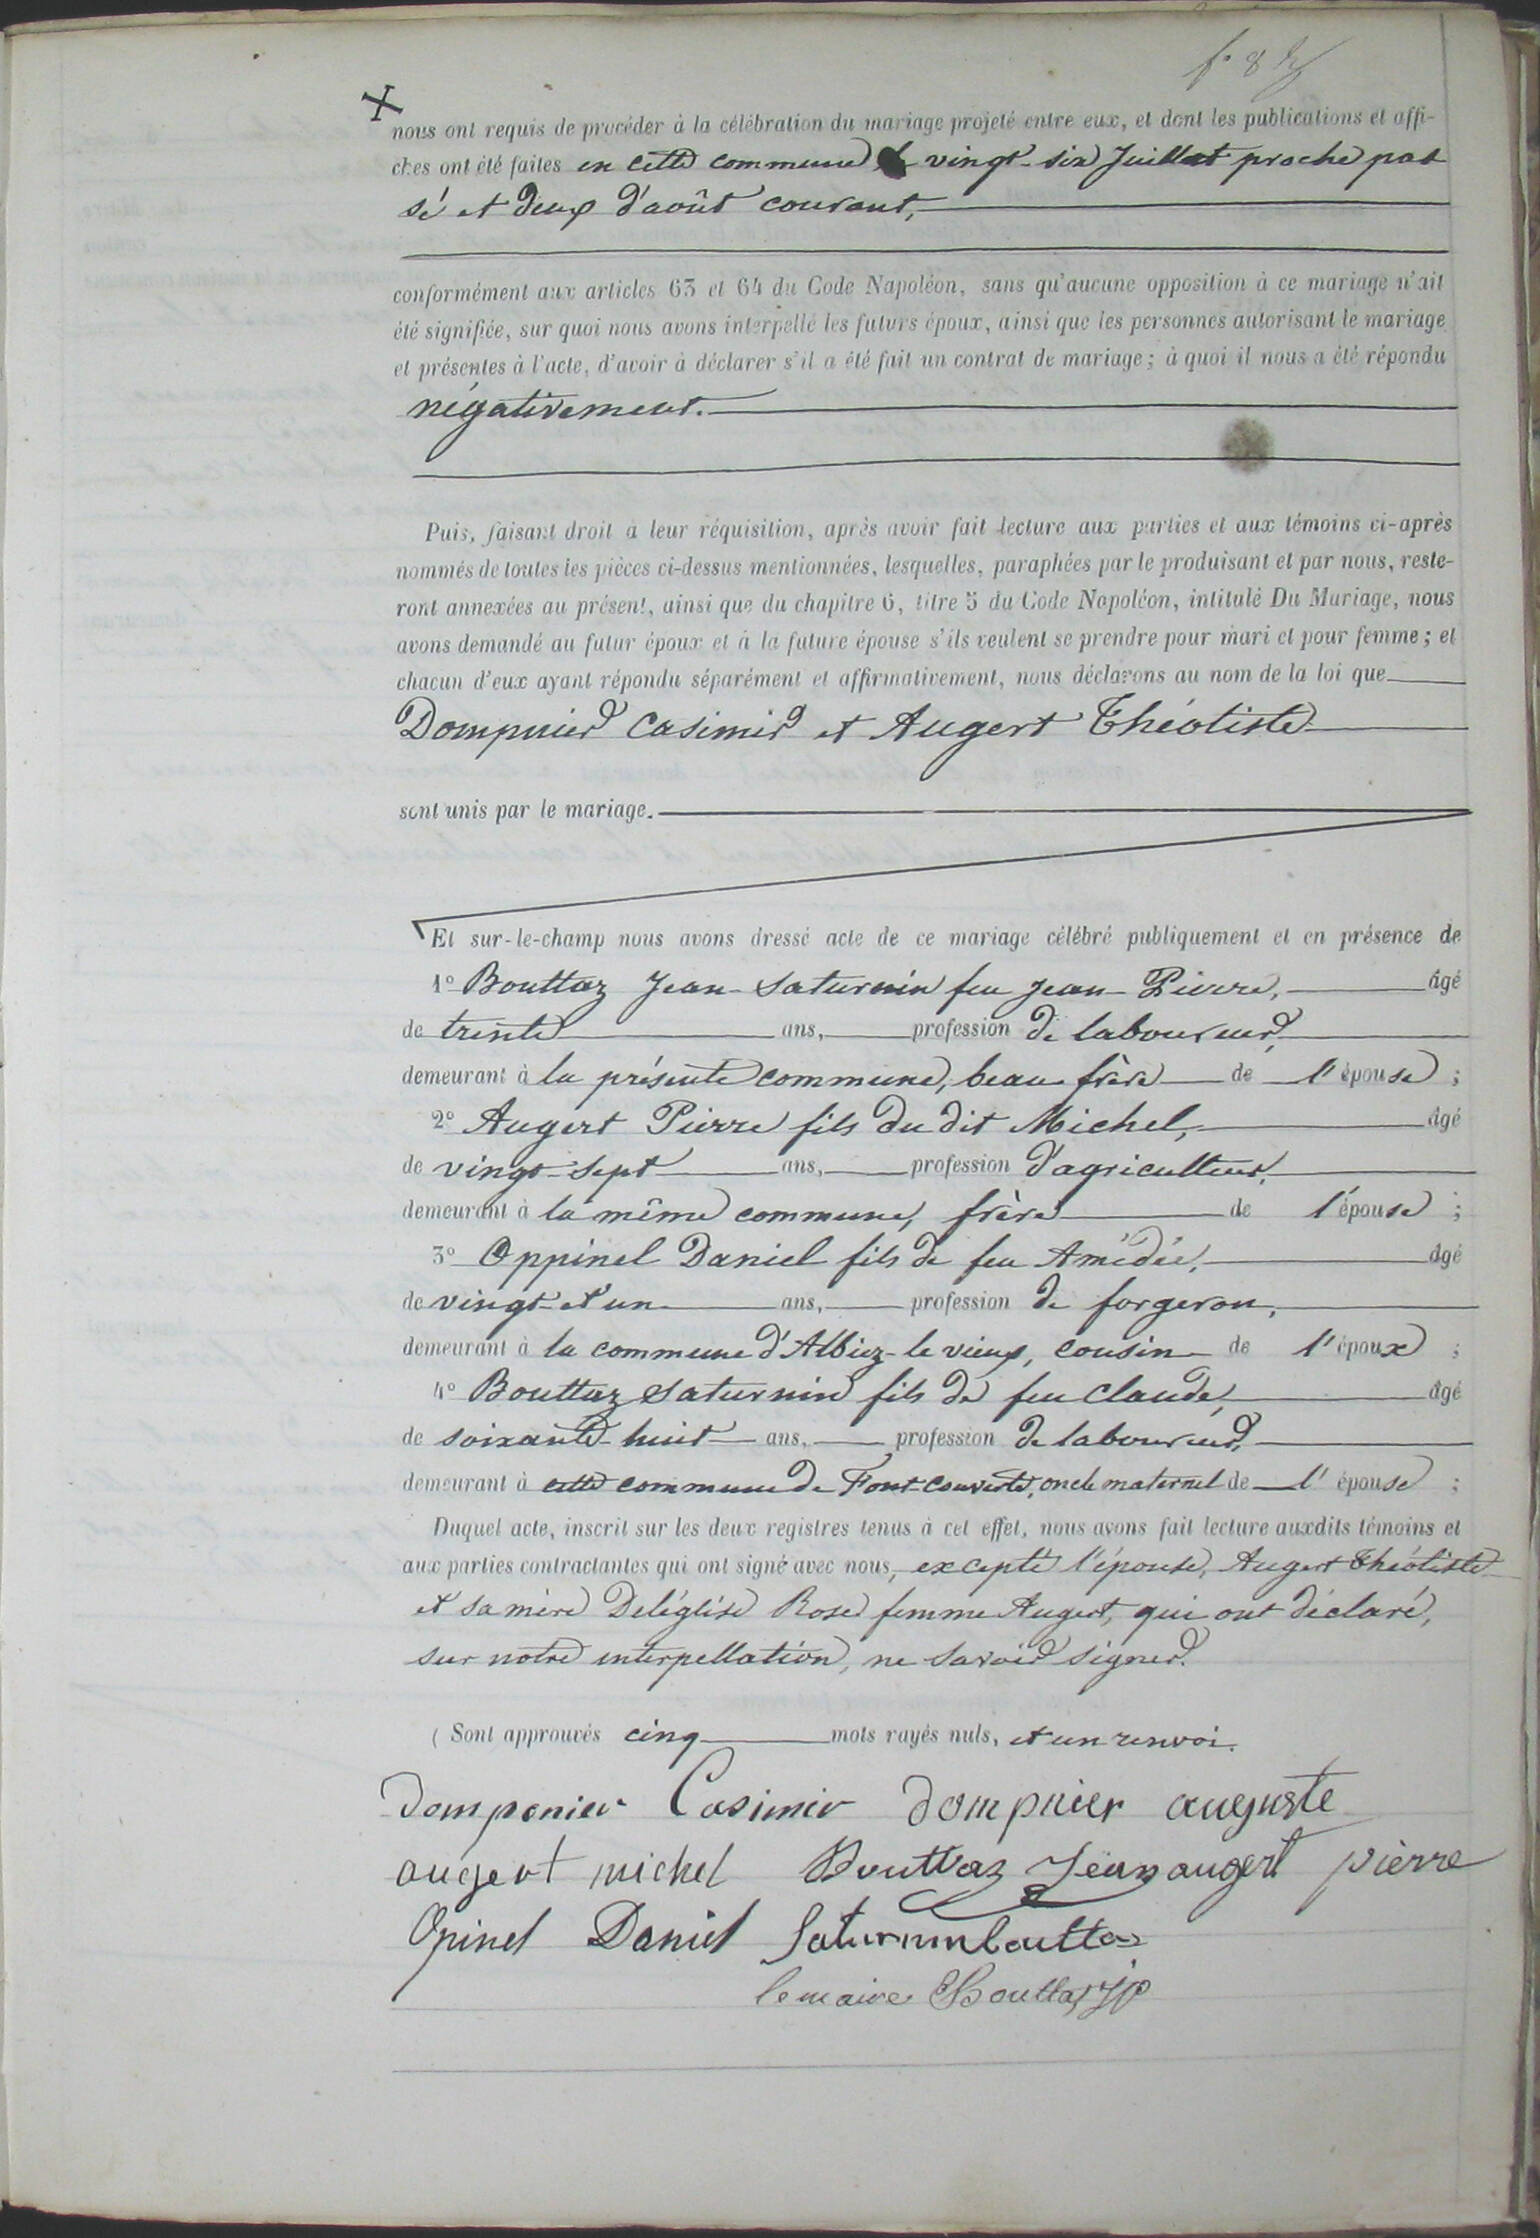 nous ont requis de procéder à la célébration du mariage projeté entre eux, et dont les publications et affi-
ches ont été faites en cette commune vingt-six Juillet proche pas
sé et deux d'août courant,
conformément aux articles 63 et 64 du Code Napoléon, sans qu'aucune opposition à ce mariage n'ait
été signifiée, sur quoi nous avons interpellé les futurs époux, ainsi que les personnes autorisant le mariage
et présentes à l'acte, d'avoir à déclarer s'il a été fait un contrat de mariage; à quoi il nous a été répondu
négativement.
Puis, faisant droit à leur réquisition, après avoir fait lecture aux parties et aux témoins ci-après
nommés de toutes les pièces ci-dessus mentionnées, lesquelles, paraphées par le produisant et par nous, reste-
ront annexées au présent, ainsi que du chapitre 6, titre 5 du Code Napoléon, intitulé Du Mariage, nous
avons demandé au futur époux et à la future épouse s'ils veulent se prendre pour mari et pour femme; et
chacun d'eux ayant répondu séparément et affirmativement, nous déclarons au nom de la loi que
Dompnier Casimir et Augert Théotiste
sont unis par le mariage.
Et sur-le-champ nous avons dressé acte de ce mariage célébré publiquement et en présence de
1° Bouttaz Jean-Saturnin feu Jean-Pierre, âgé
de trente ans, profession de laboureur,
demeurant à la présente commune, beau-frère de l'épouse ;
2° Augert Pierre fils du dit Michel, âgé
de vingt-sept ans, profession d'agriculteur,
demeurant à la même commune, frère de l'épouse ;
3° Oppinel Daniel fils de feu Amédée, âgé
de vingt et un ans, profession de forgeron,
demeurant à la commune d'Albiez-le vieux, cousin de l'époux ;
4° Bouttaz Saturnin fils de feu Claude, âgé
de soixante-huit ans, profession de laboureur,
demeurant à cette commune de Fontcouverte, oncle maternel de l'épouse ;
Duquel acte, inscrit sur les deux registres tenus à cet effet, nous avons fait lecture auxdits témoins et
aux parties contractantes qui ont signé avec nous, excepté l'épouse, Augert Théotiste
et sa mère Deléglise Rose femme Augert, qui ont déclaré,
sur notre interpellation, ne savoir signer.
(Sont approuvés cinq mots rayés nuls, et un renvoi.
Domponier Casimir Dompnier auguste
augert michel Bouttaz Jean augert pièrre
Opinel Daniel Saturnin bouttaz
le maire Bouttaz JP